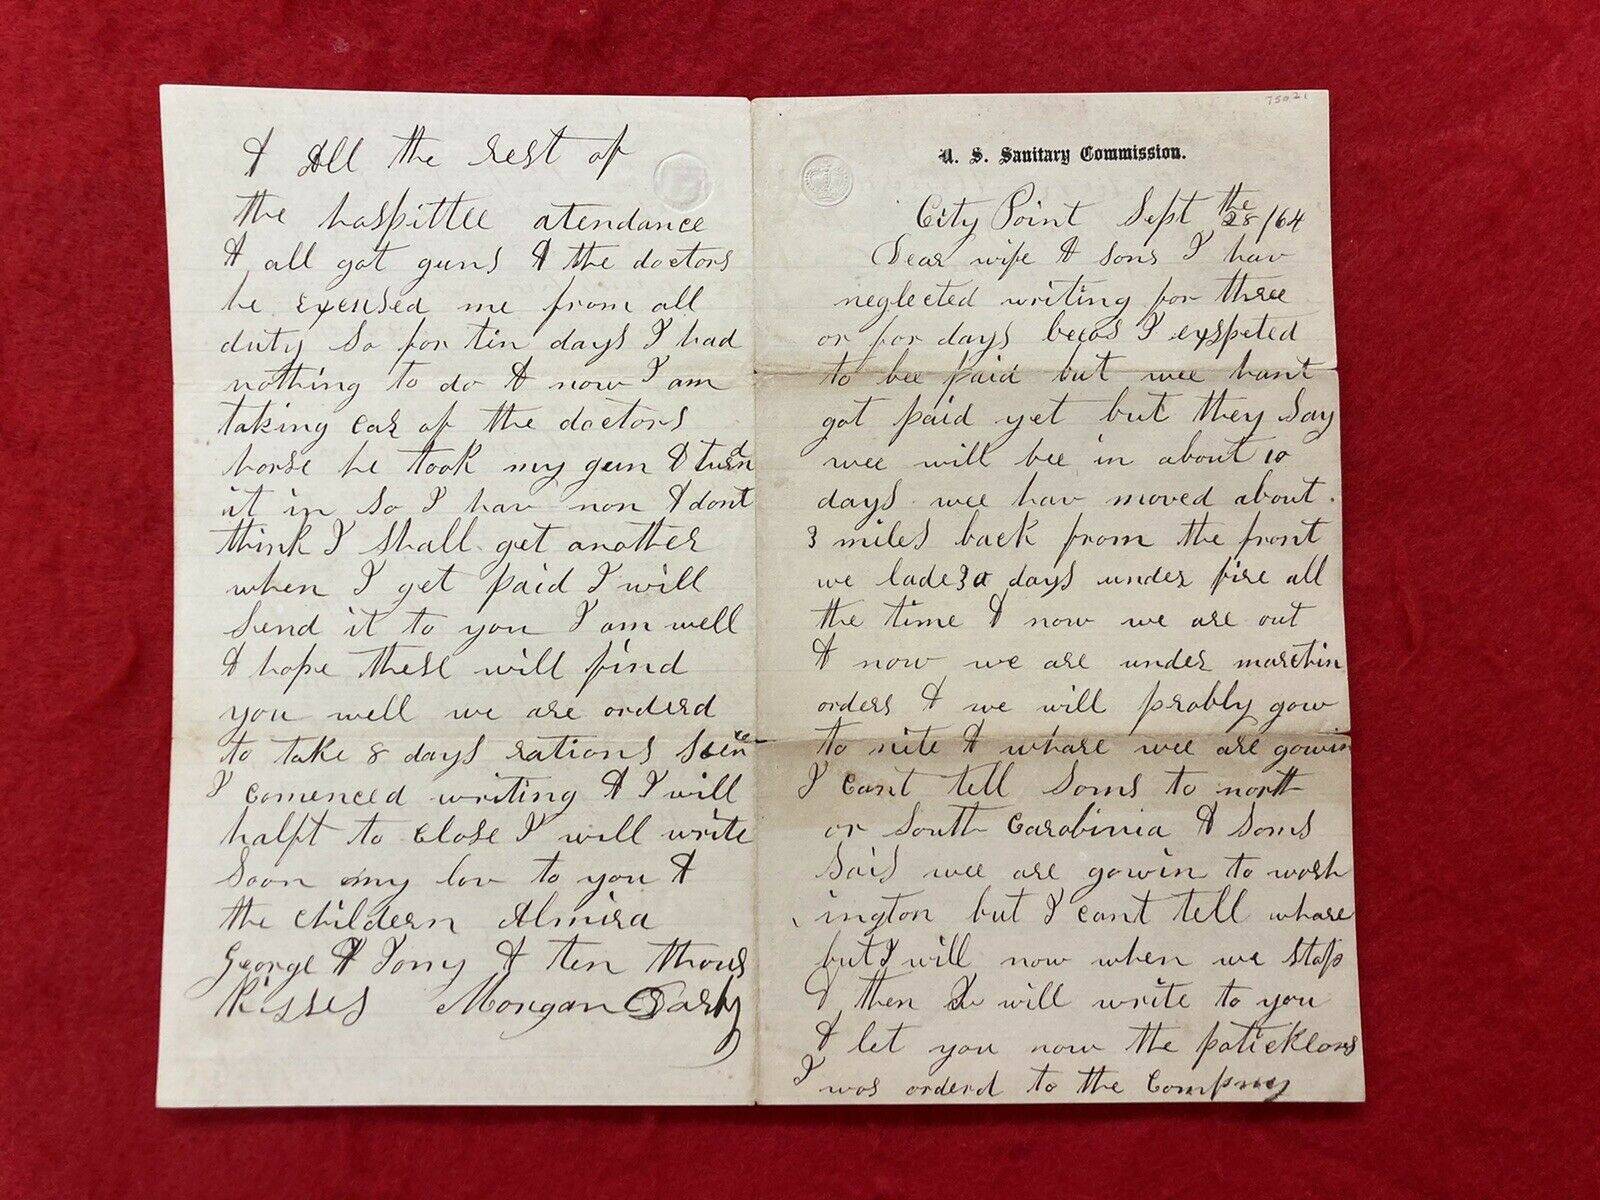 75021
U. S. Sanitary Commission.
City Point Sept the 28/64
Dear wife & sons I hav
neglected writing for three
or for days becos I exspeted
to bee paid but wee hant
got paid yet but they Say
wee will bee in about 10
days wee hav moved about
3 miles back from the front
we lade 30 days under fire all
the time & now we are out
& now we are under marchin
orders & we will prably gow
to nite & whare wee are gowin
I cant tell Soms to north
or South Carobinia & Soms
Sais wee are gowin to wash
ington but I cant tell whare
but I will now when we stop
& then I will write to you
& let you now the paticklors
I was orderd to the Compny
& All the rest of
the hospittle atendance
& all got guns & the doctors
he exensed me from all
duty So for tin days I had
nothing to do & now I am
taking car of the doctors
horse he took my gun & turn
it in So I hav non & dont
think I Shall get another
when I get paid I will
Send it to you I am well
& hope these will find
you well we are orderd
to take 8 days rations Sence
I comenced writing & I will
halft to close I will write
Soon my lov to you &
the childern Almira
George & Tony & ten thous
Kisses Morgan Darby